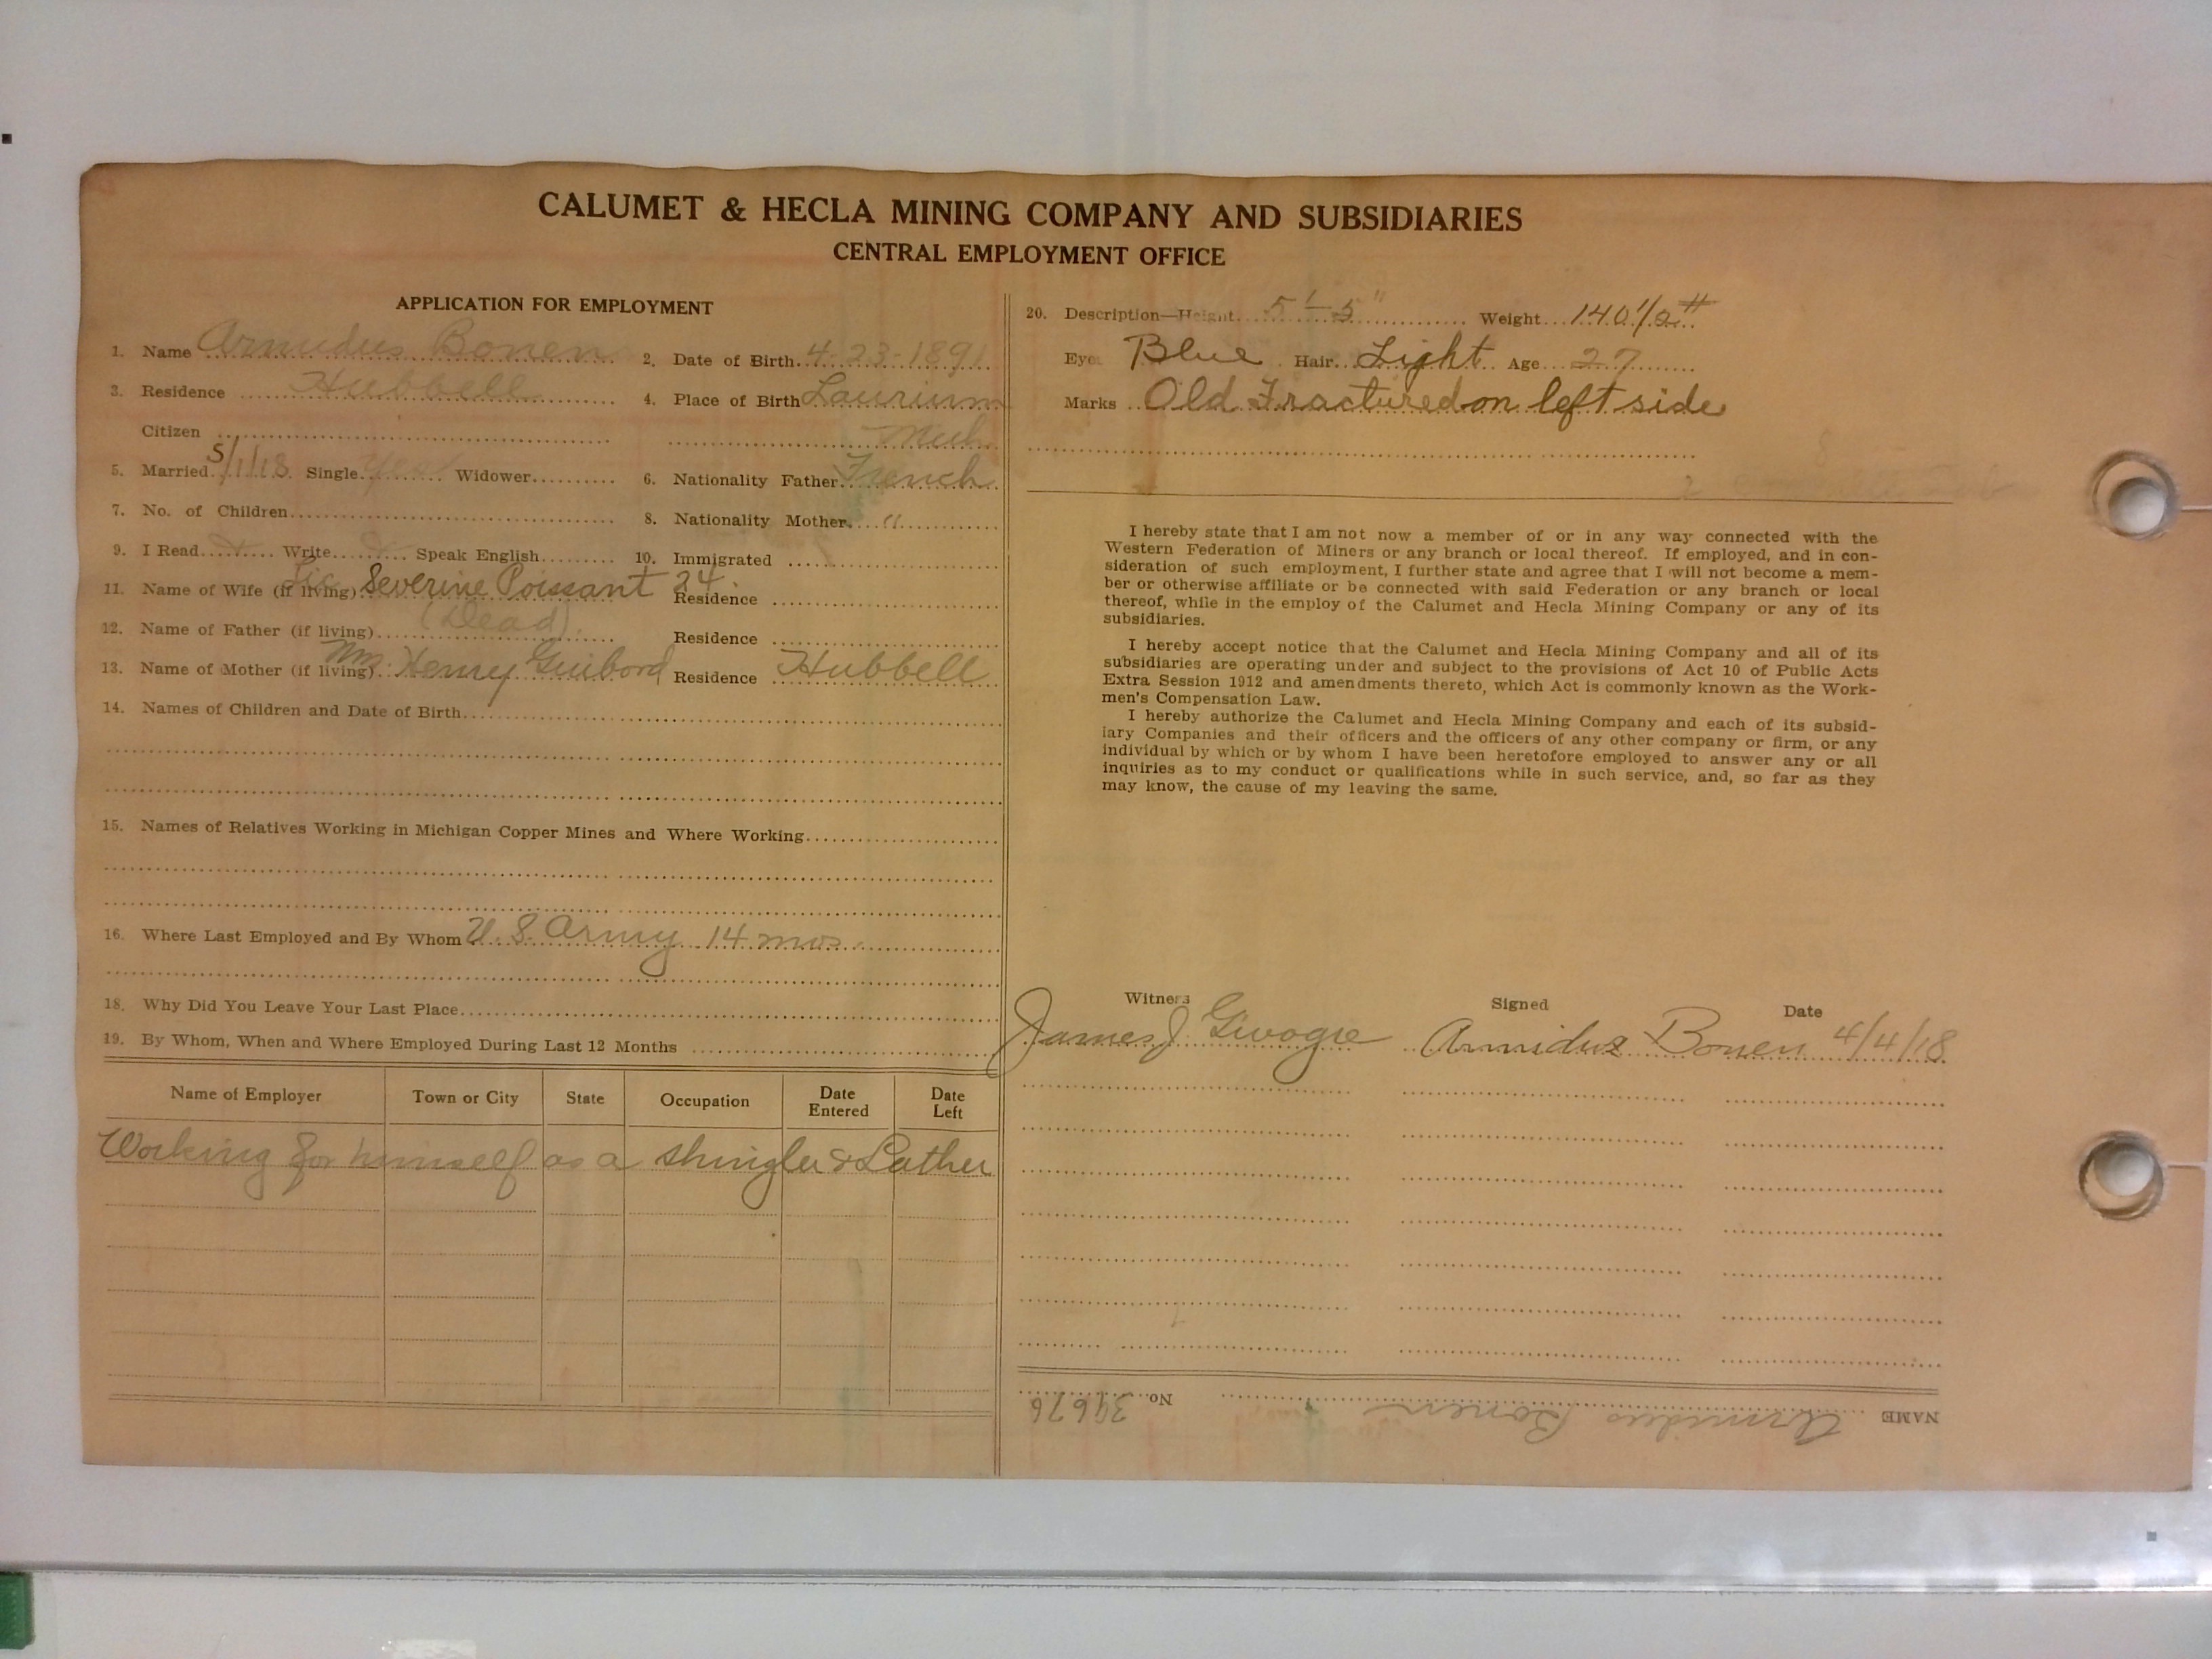 CALUMET & HECLA MINING COMPANY AND SUBSIDIARIES
CENTRAL EMPLOYMENT OFFICE
APPLICATION FOR EMPLOYMENT
1. Name Armidus Bonen 2. Date of Birth 4-23-1891
3. Residence Hubbell 4. Place of Birth Laurium
Citizen Mich
5. Married 5/1/18 Single Yes Widower 6. Nationality Father French
7. No. of Children 8. Nationality Mother "
9. I Read Write Speak English 10. Immigrated
11. Name of Wife (if living) Severine Poissant 24 Residence
12. Name of Father (if living) (Dead) Residence
13. Name of Mother (if living) Mrs. Henry Guibord Residence Hubbell
14. Names of Children and Date of Birth
15. Names of Relatives Working in Michigan Copper Mines and Where Working
16. Where Last Employed and By Whom U.S. Army 14 mos.
18. Why Did You Leave Your Last Place
19. By Whom, When and Where Employed During Last 12 Months
Name of Employer Town or City State Occupation Date Entered Date Left
Working for himself as a shingler & Lather
20. Description—Height 5'-5" Weight 140 1/2 #
Eye Blue Hair Light Age 27
Marks Old Fractured on left side
I hereby state that I am not now a member of or in any way connected with the
Western Federation of Miners or any branch or local thereof. If employed, and in con-
sideration of such employment, I further state and agree that I will not become a mem-
ber or otherwise affiliate or be connected with said Federation or any branch or local
thereof, while in the employ of the Calumet and Hecla Mining Company or any of its
subsidiaries.
I hereby accept notice that the Calumet and Hecla Mining Company and all of its
subsidiaries are operating under and subject to the provisions of Act 10 of Public Acts
Extra Session 1912 and amendments thereto, which Act is commonly known as the Work-
men's Compensation Law.
I hereby authorize the Calumet and Hecla Mining Company and each of its subsid-
iary Companies and their officers and the officers of any other company or firm, or any
individual by which or by whom I have been heretofore employed to answer any or all
inquiries as to my conduct or qualifications while in such service, and, so far as they
may know, the cause of my leaving the same.
Witness Signed Date
James J. Givogre Armidus Bonen 4/4/18
NAME Armidus Bonen No. 39676